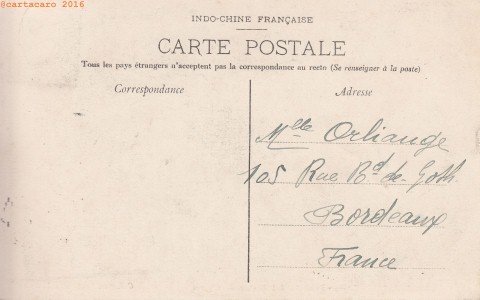 @cartacaro 2016
INDO-CHINE FRANÇAISE
CARTE POSTALE
Tous les pays étrangers n'acceptent pas la correspondance au recto (Se renseigner à la poste)
Correspondance
Adresse
Mlle Orliange
105 Rue Bd de Goth
Bordeaux
France